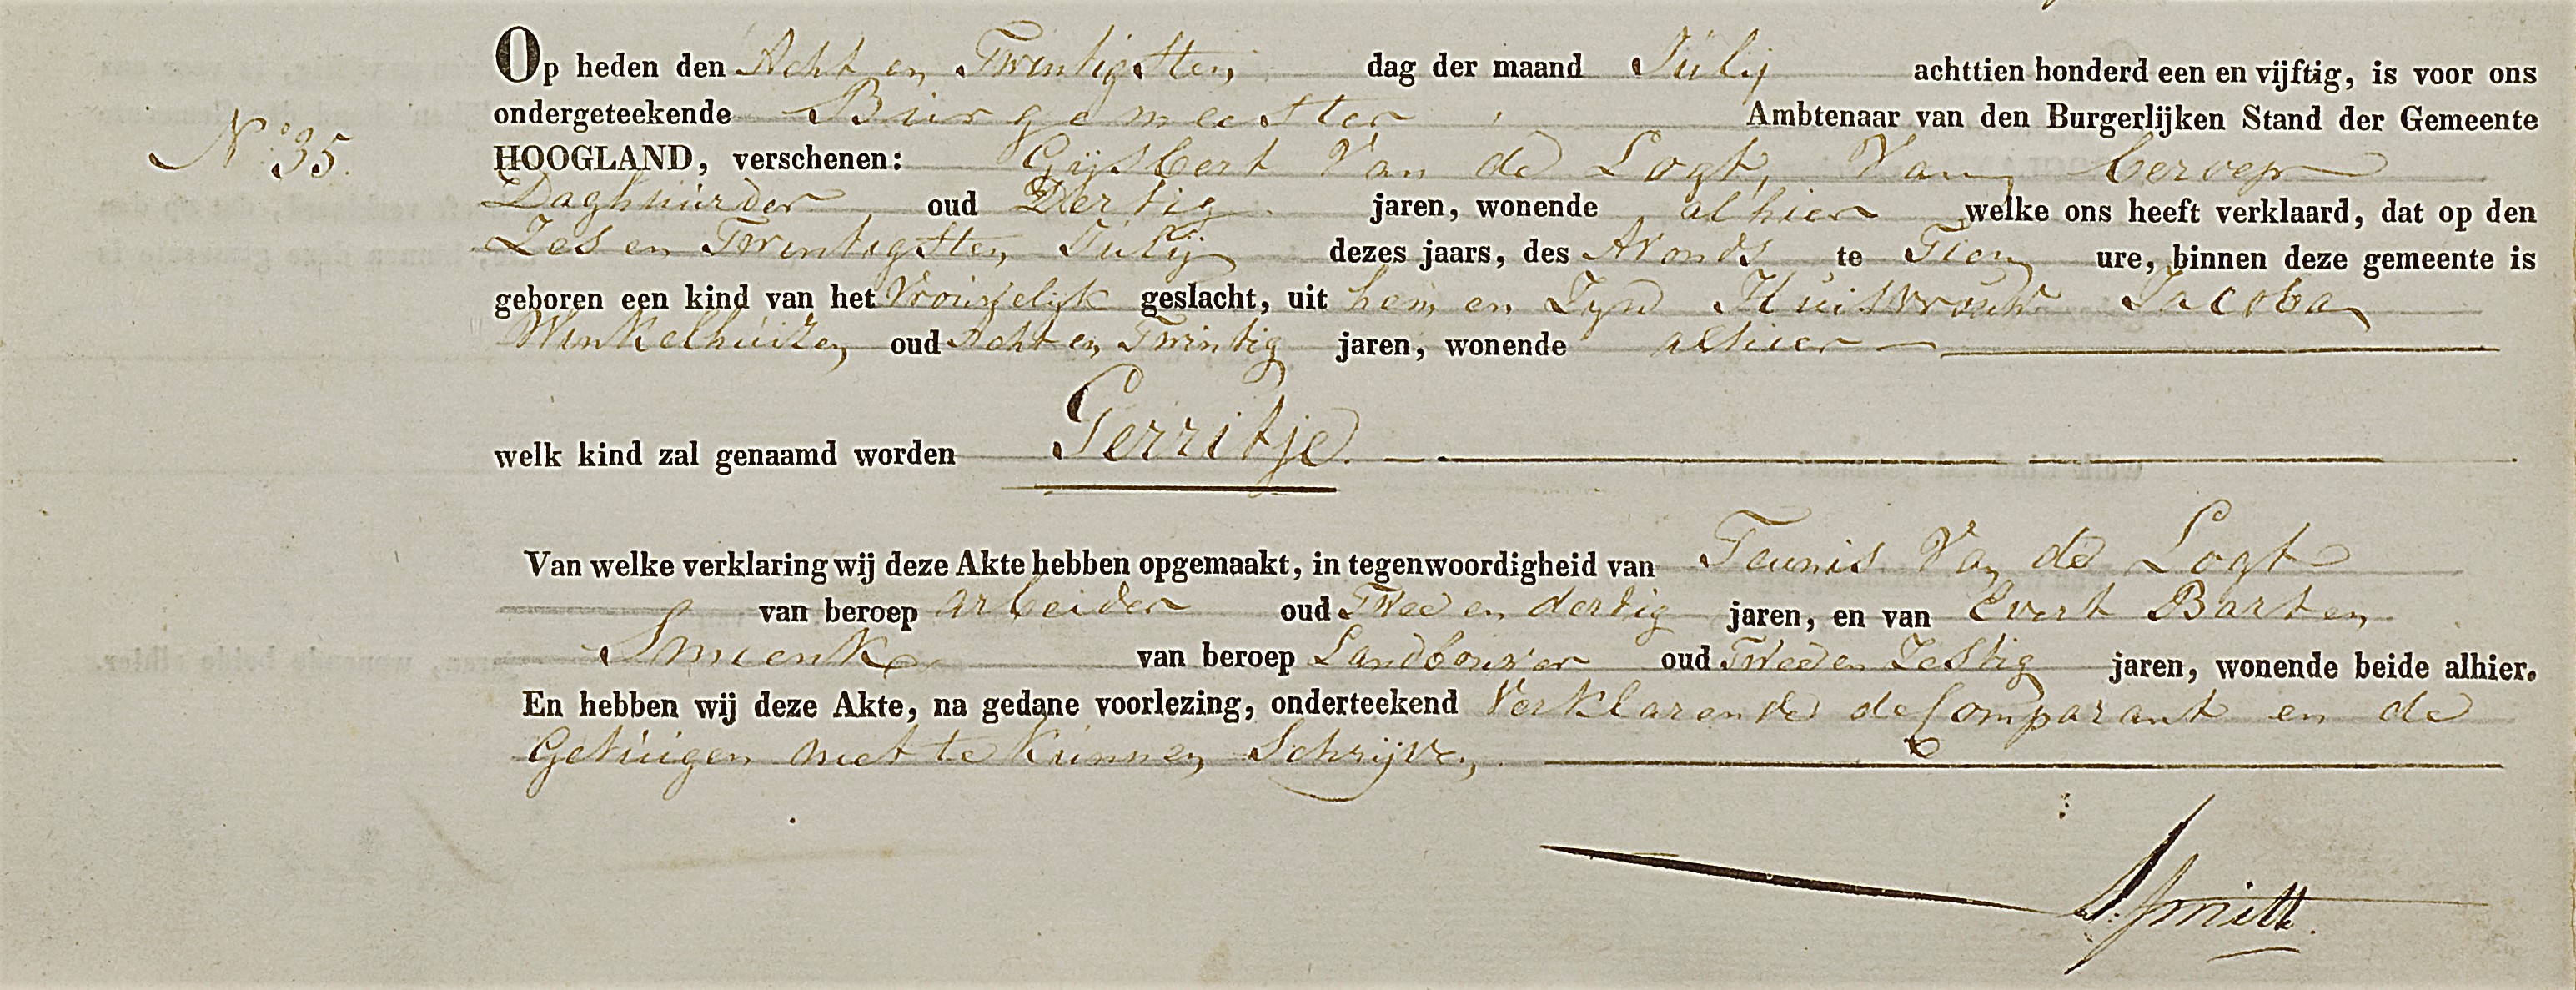 Op heden den Acht en Twintigsten dag der maand Julij achttien honderd een en vijftig, is voor ons
ondergeteekende Burgemeester Ambtenaar van den Burgerlijken Stand der Gemeente
No. 35.
HOOGLAND, verschenen: Gijsbert Van de Logt, Van beroep
Daghuurder oud Dertig jaren, wonende alhier welke ons heeft verklaard, dat op den
Zes en Twintigsten Julij dezes jaars, des Avonds te Tien ure, binnen deze gemeente is
geboren een kind van het Vrouwelijk geslacht, uit hem en Zijne Huisvrouw Jacoba
Winkelhuizen oud Acht en Twintig jaren, wonende alhier
welk kind zal genaamd worden Gerritje.
Van welke verklaring wij deze Akte hebben opgemaakt, in tegenwoordigheid van Teunis Van de Logt
van beroep arbeider oud Twee en dertig jaren, en van Evert Barten
Smienk van beroep Landbouwer oud Twee en Zestig jaren, wonende beide alhier.
En hebben wij deze Akte, na gedane voorlezing, onderteekend Verklarende de Comparant en de
Getuigen niet te kunnen Schrijven.
Smitt.